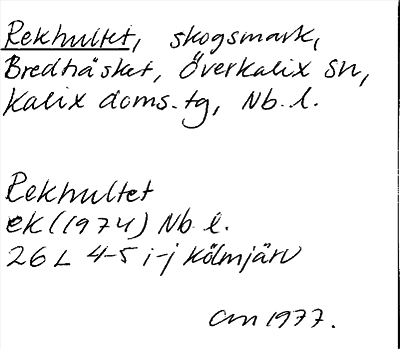 Rekhultet, skogsmark,
Bredträsket, Överkalix sn,
Kalix doms.tg, Nb. l.
Rekhultet
ek (1974) Nb l.
26 L 4-5 i-j Kölmjärv
CM 1977.